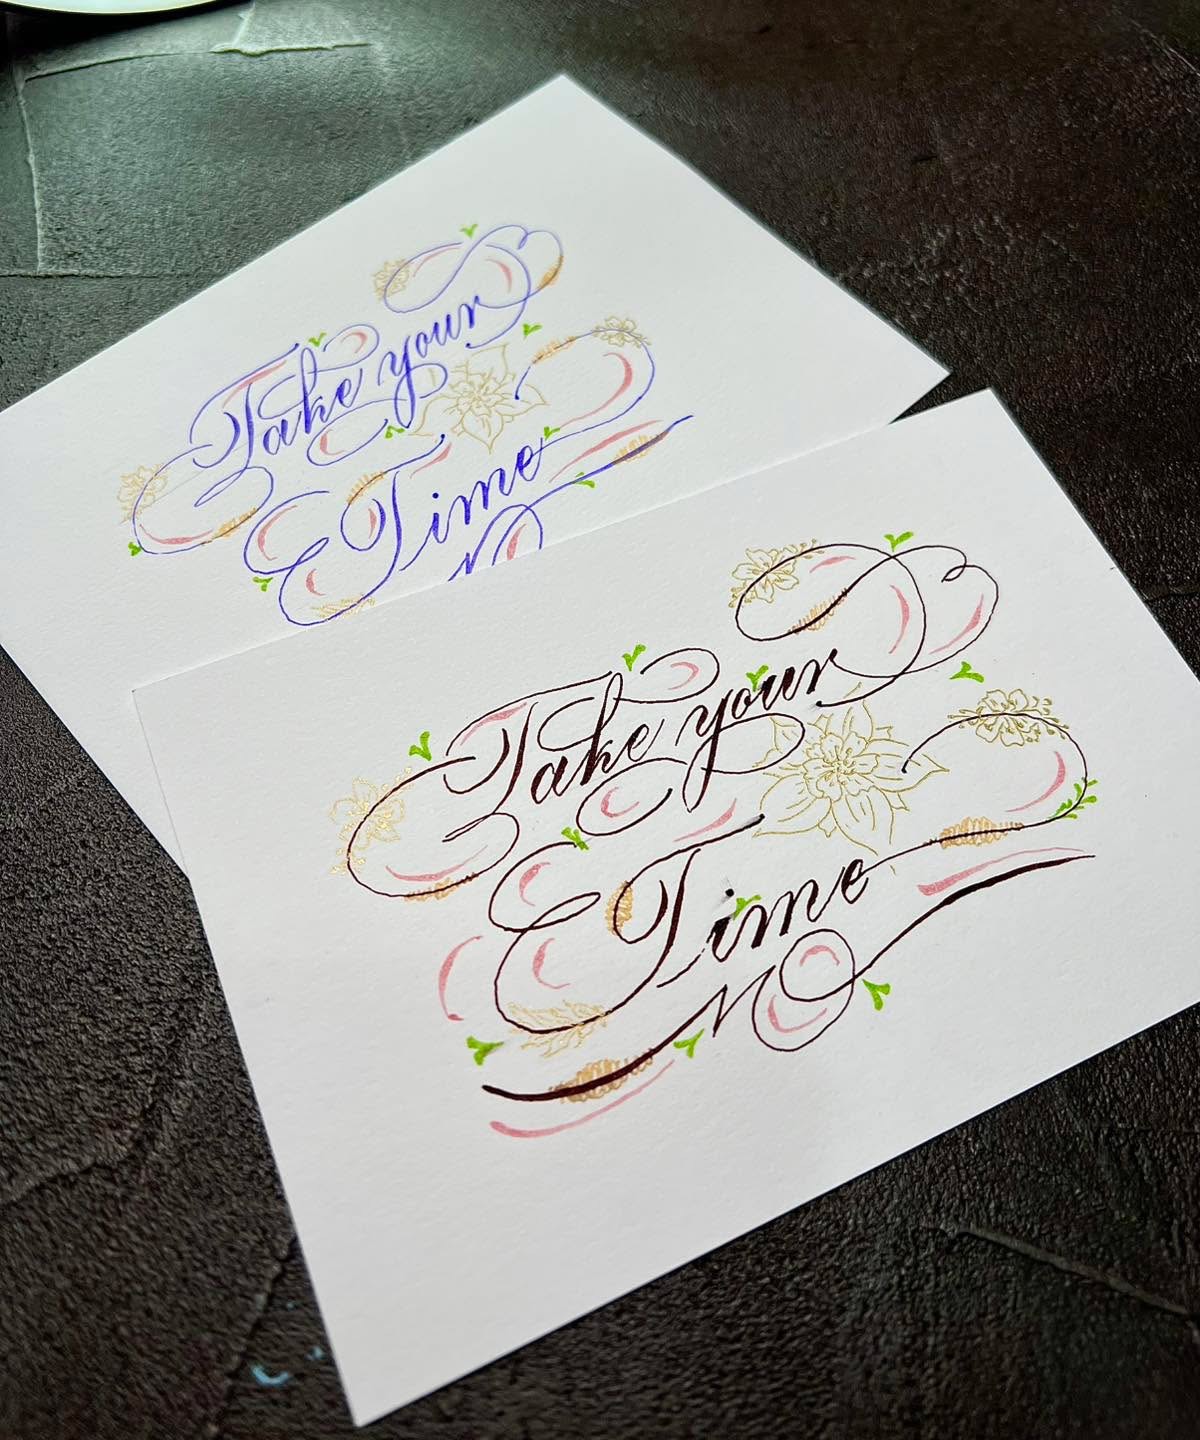 Take your
Time
Take your
Time